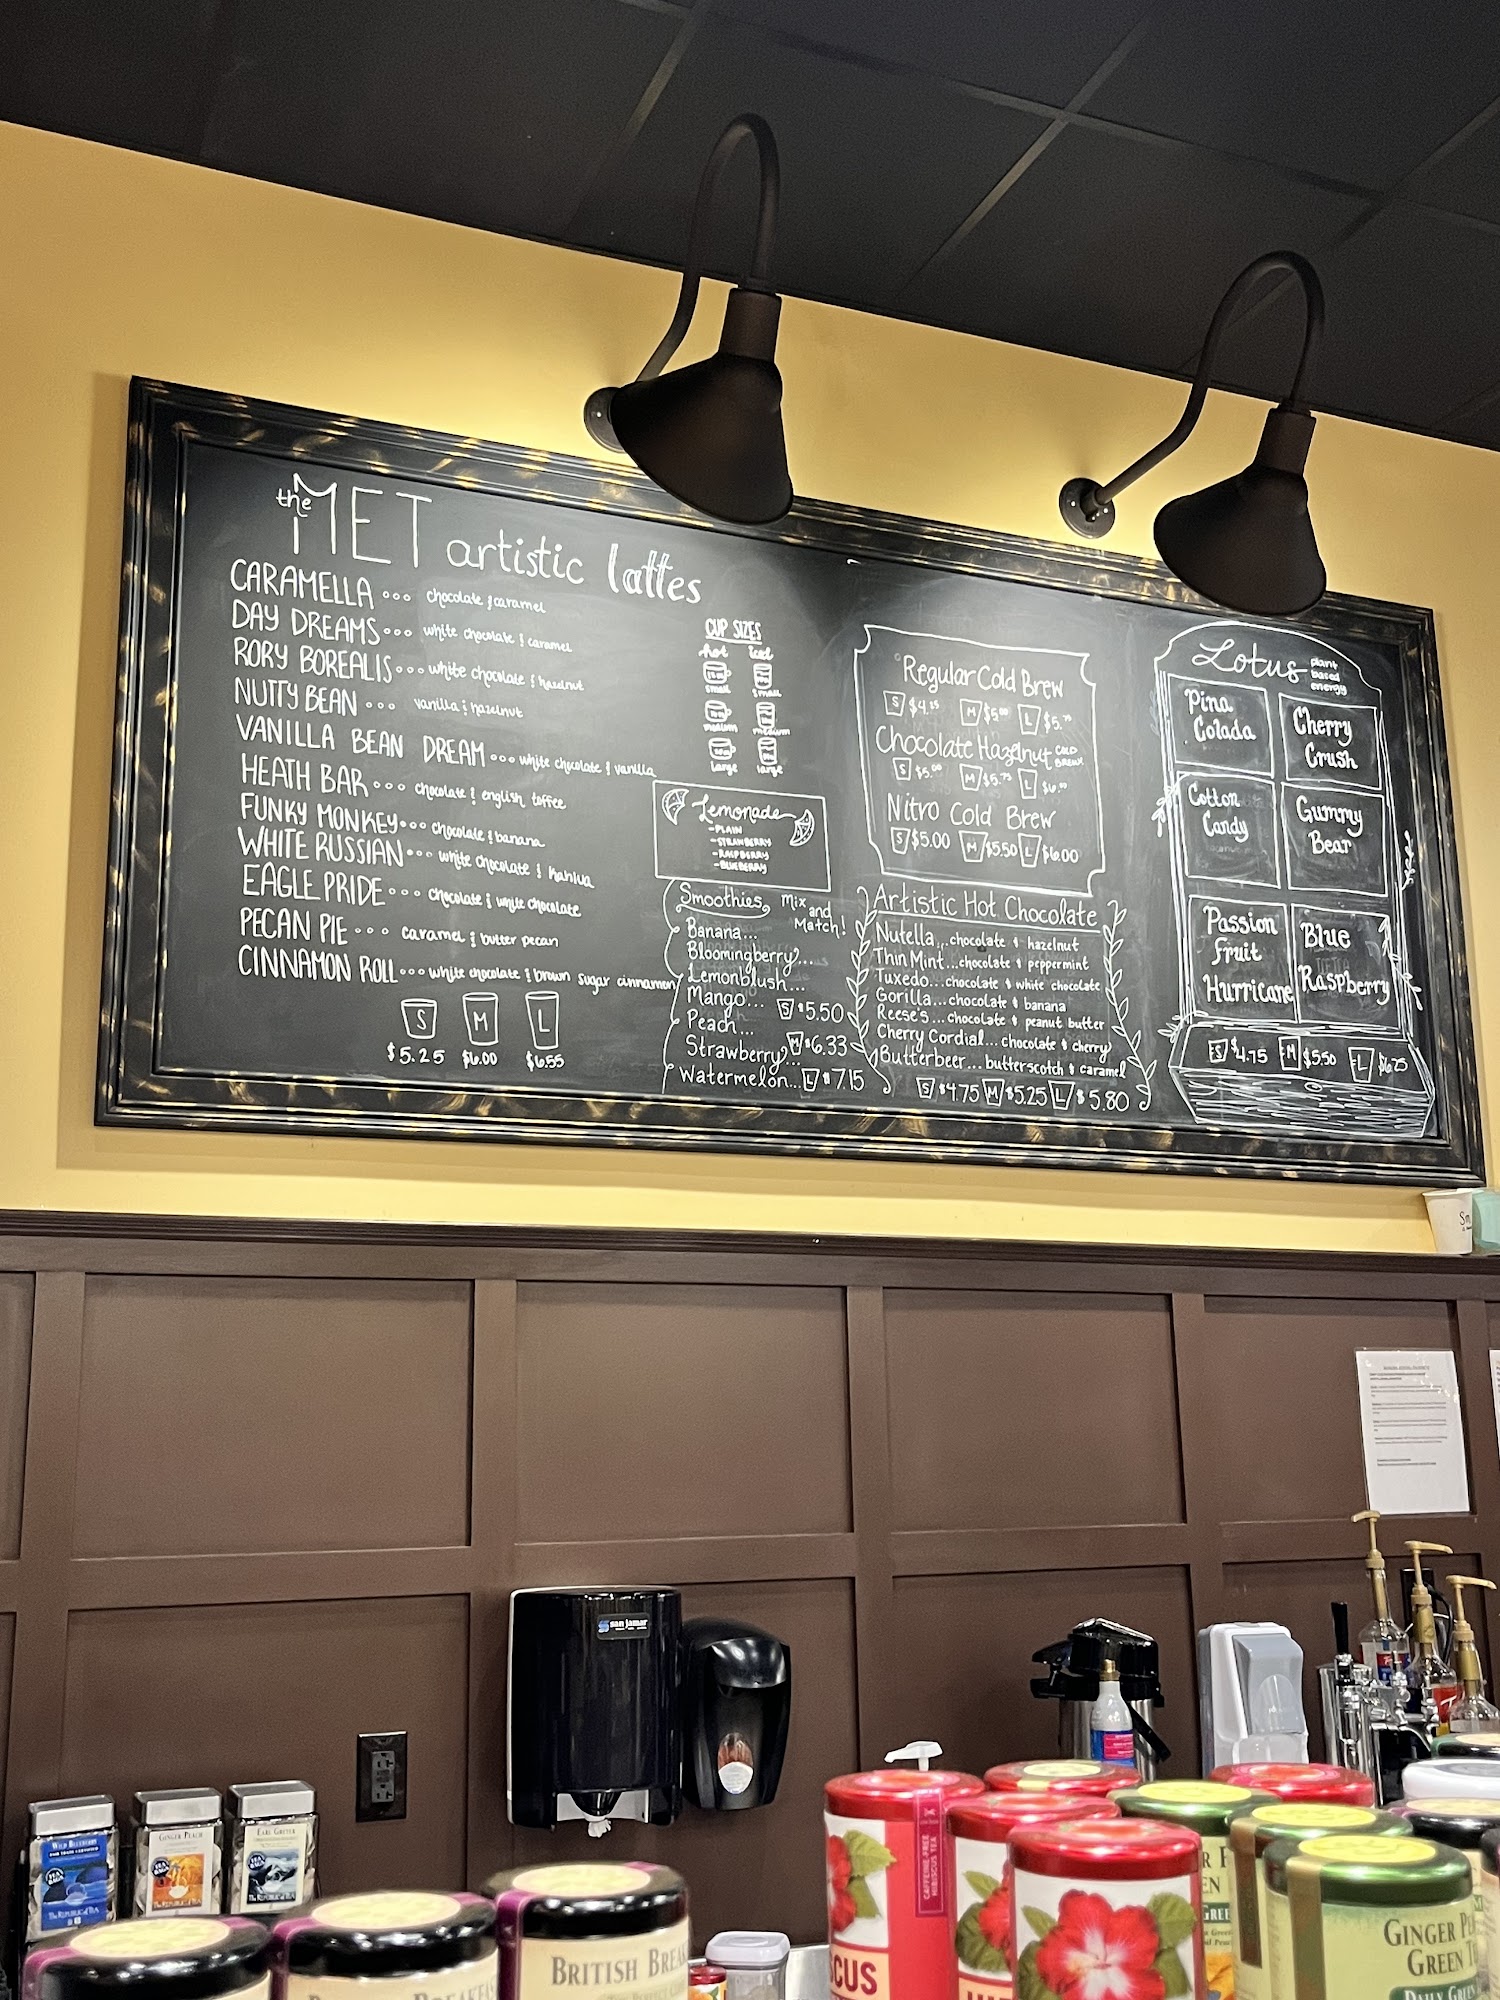 the MET artistic lattes
CARAMELLA ooo chocolate & caramel
DAY DREAMS ooo white chocolate & caramel
RORY BOREALIS ooo white chocolate & hazelnut
NUTTY BEAN ooo vanilla & hazelnut
VANILLA BEAN DREAM ooo white chocolate & vanilla
HEATH BAR ooo chocolate & english toffee
FUNKY MONKEY ooo chocolate & banana
WHITE RUSSIAN ooo white chocolate & kahlua
EAGLE PRIDE ooo chocolate & white chocolate
PECAN PIE ooo caramel & butter pecan
CINNAMON ROLL ooo white chocolate & brown sugar cinnamon
S M L
$5.25 $6.00 $6.55
CUP SIZES
hot iced
small small
medium medium
large large
Lemonade
-PLAIN
-STRAWBERRY
-RASPBERRY
-BLUEBERRY
Smoothies Mix and Match!
Banana...
Bloomingberry...
Lemonblush...
Mango... S $5.50
Peach...
Strawberry M $6.33
Watermelon... L $7.15
Regular Cold Brew
S M $5.00 L
Chocolate Hazelnut COLD BREW
S $5.00 M $5.75 L $6.00
Nitro Cold Brew
S $5.00 M $5.50 L $6.00
Artistic Hot Chocolate
Nutella...chocolate & hazelnut
Thin Mint...chocolate & peppermint
Tuxedo...chocolate & white chocolate
Gorilla...chocolate & banana
Reese's...chocolate & peanut butter
Cherry Cordial...chocolate & cherry
Butterbeer...butterscotch & caramel
S $4.75 M $5.25 L $5.80
Lotus plant based energy
Pina Colada
Cherry Crush
Cotton Candy
Gummy Bear
Passion Fruit Hurricane
Blue Raspberry
S $4.75 M $5.50 L $6.25
san jamar
WILD BLUEBERRY
GINGER PEACH
EARL GREYER
THE REPUBLIC OF TEA
THE REPUBLIC OF TEA
THE REPUBLIC OF TEA
BRITISH BREAK
CAFFEINE-FREE
HIBISCUS TEA
SCUS
GINGER PE
GREEN T
DAILY GREEN